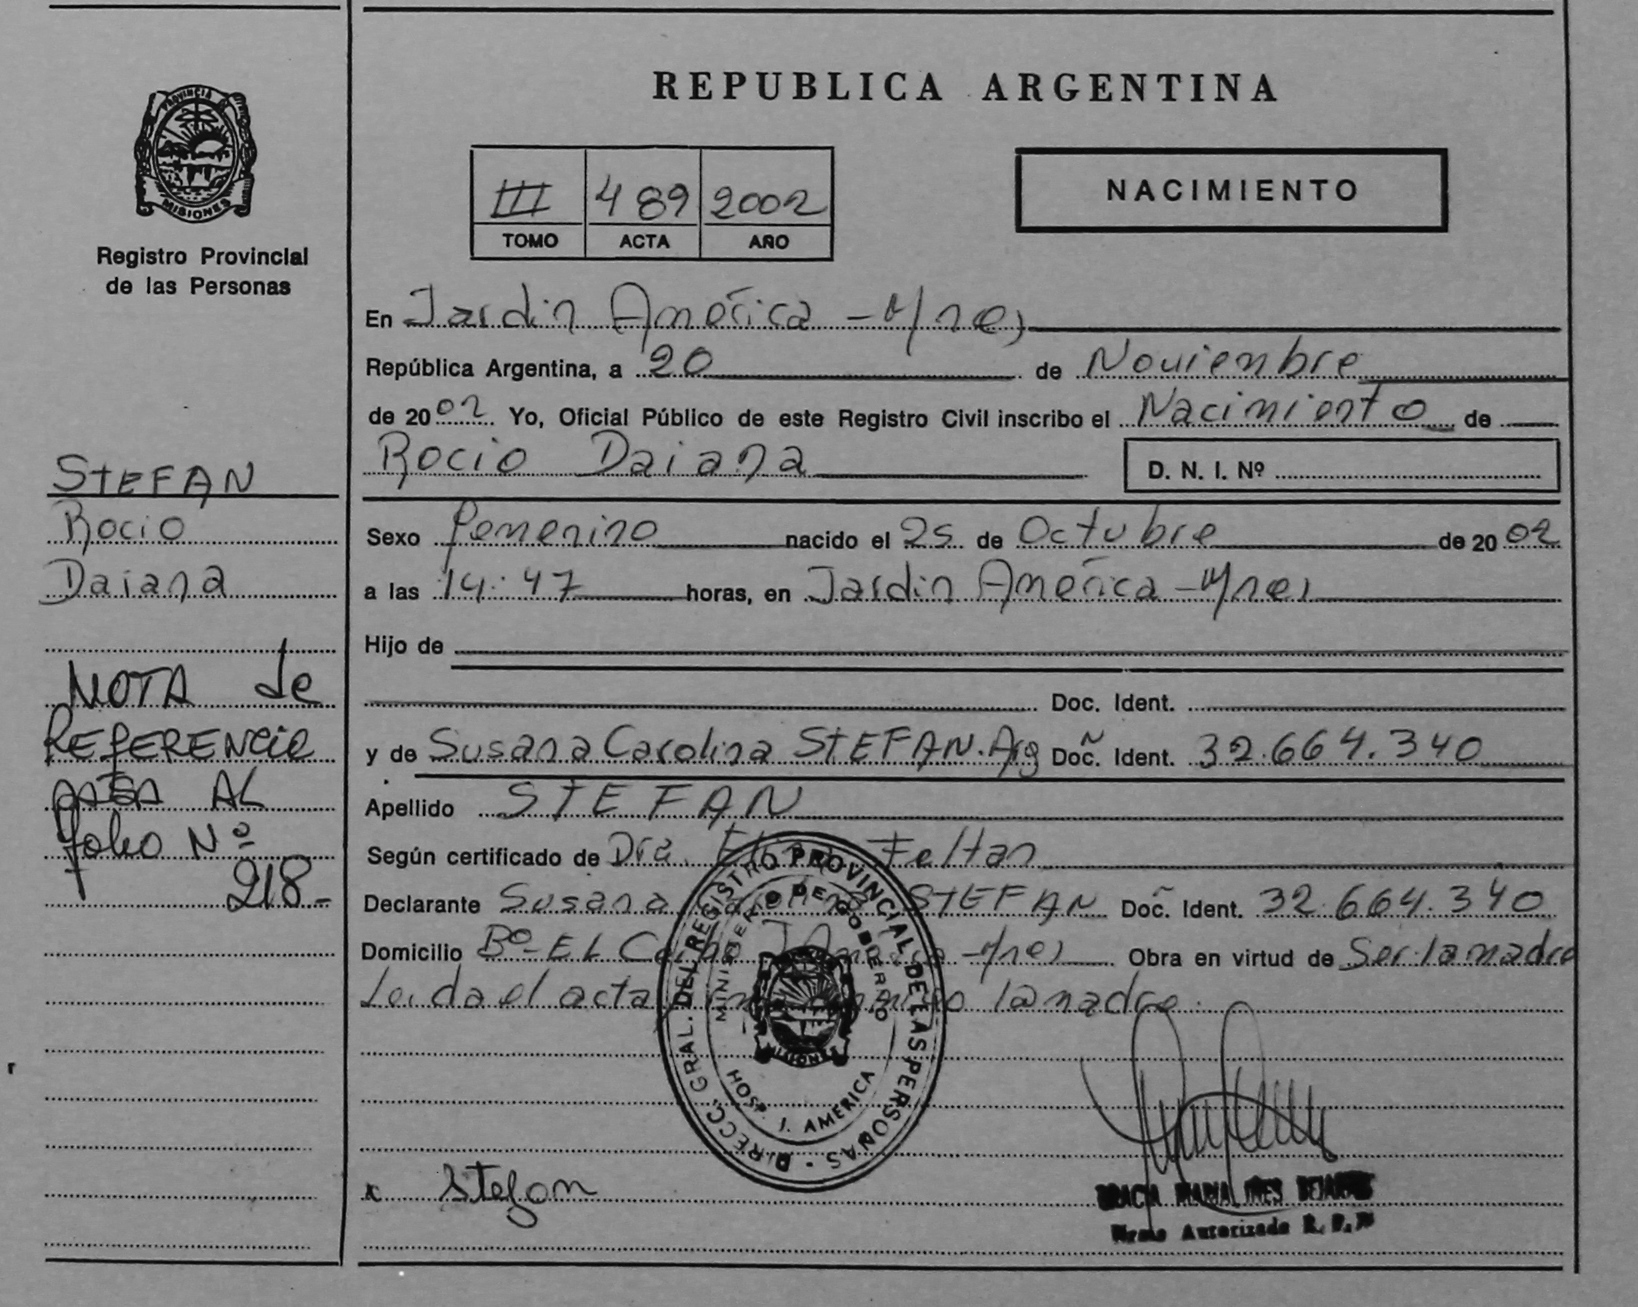 REPUBLICA ARGENTINA
PROVINCIA D MISIONES
Registro Provincial
de las Personas
III 489 2002
TOMO ACTA AÑO
NACIMIENTO
En Jardin América - M/nes,
República Argentina, a 20 de Noviembre
de 2002 Yo, Oficial Público de este Registro Civil inscribo el Nacimiento de
Rocio Daiana D. N. I. Nº
Sexo Femenino nacido el 25 de Octubre de 2002
a las 14:47 horas, en Jardin América - M/nes
Hijo de
Doc. Ident.
y de Susana Carolina STEFAN. Arg Doc. Ident. 32.664.340
Apellido STEFAN
Según certificado de Dra. Feltan
Declarante Susana STEFAN Doc. Ident. 32.664.340
Domicilio Bº EL M/nes Obra en virtud de Ser la madre
Leida el acta la madre.
STEFAN
Rocio
Daiana
NOTA de
REFERENCIA
PASA AL
folio Nº
218-
DIRECC. GRAL. DEL REGISTRO PROVINCIAL DE LAS PERSONAS
MINISTERIO DE GOBIERNO
MISIONES
HOSP. J. AMERICA
x Stefan
MARIA INES
Firma Autorizada R. P. P.